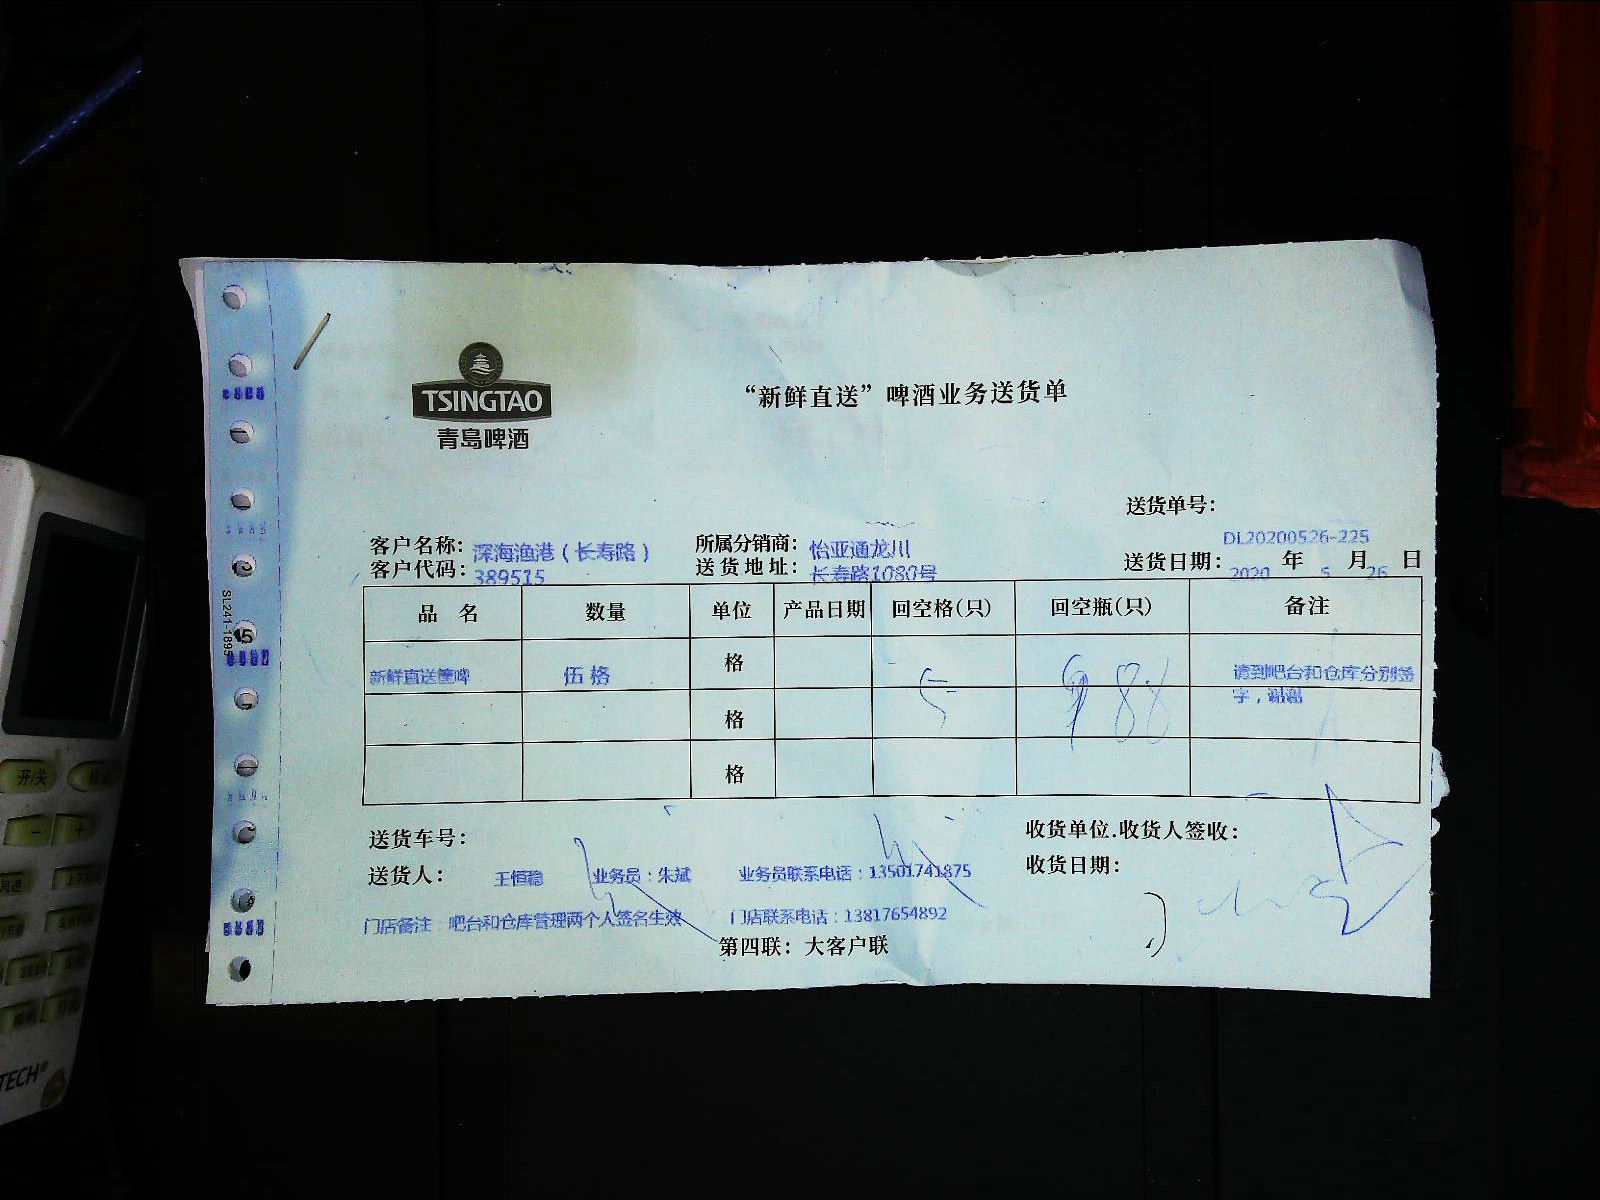 TSINGTAO
青岛啤酒
“新鲜直送”啤酒业务送货单
送货单号：
DL20200526-225
客户名称：深海渔港（长寿路） 所属分销商：怡亚通龙川
客户代码：389515 送货地址：长寿路1080号 送货日期：2020 年 5 月 26 日
品 名 数量 单位 产品日期 回空格(只) 回空瓶(只) 备注
新鲜直送筐啤 伍格 格 5 88 请到吧台和仓库分别签
字，谢谢
格
格
送货车号： 收货单位.收货人签收：
送货人： 王恒稳 业务员：朱斌 业务员联系电话：13501741875 收货日期：
门店备注：吧台和仓库管理两个人签名生效 门店联系电话：13817654892
第四联：大客户联
SL241-1895
开/关
- +
TECH